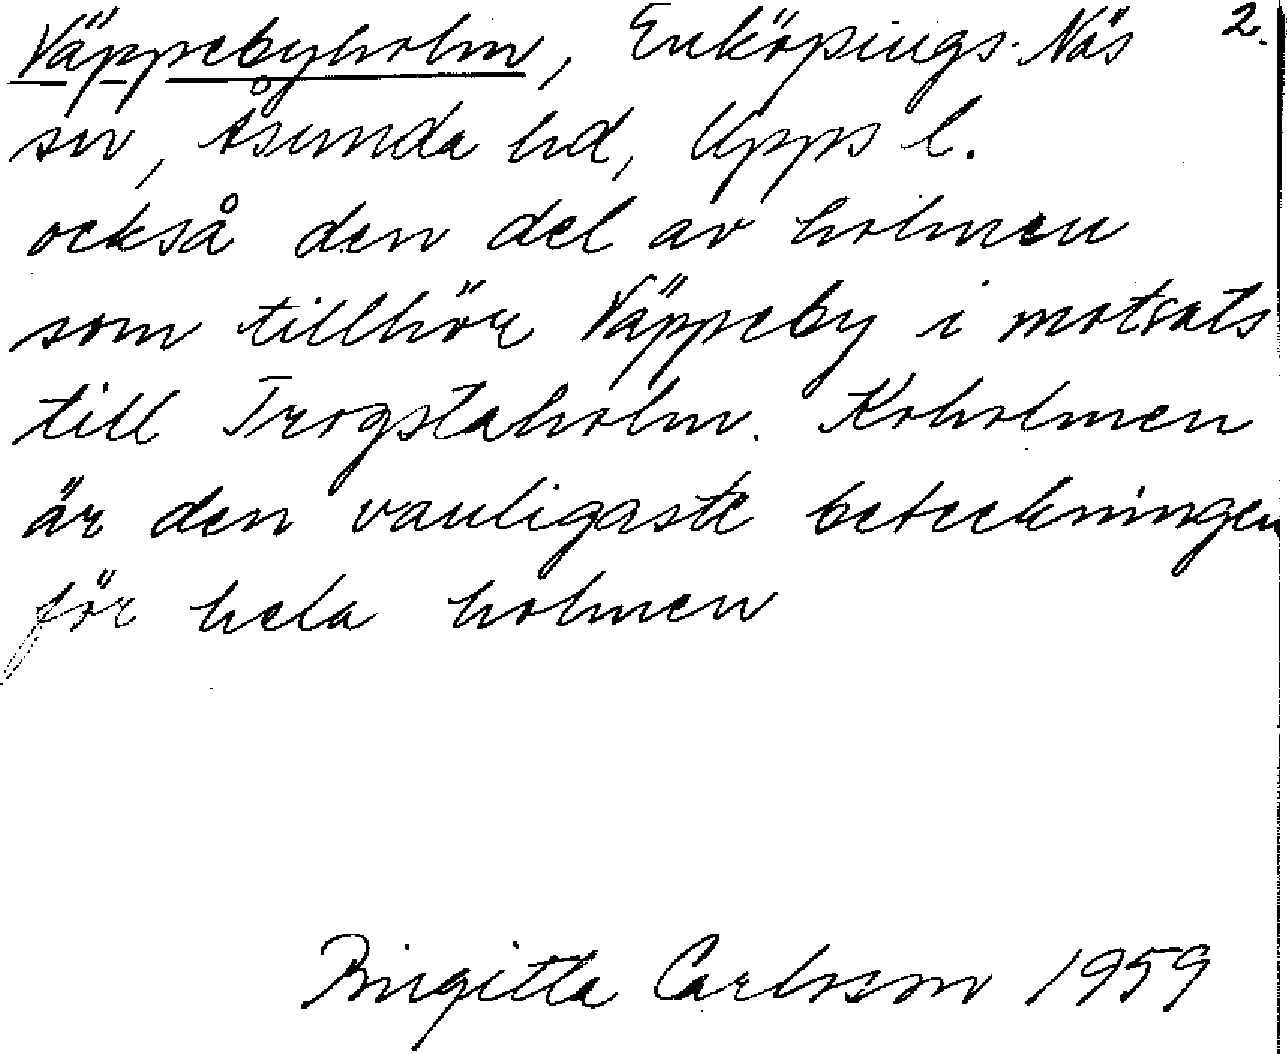 Väppebyholm, Enköpings-Näs 2.
sn, Åsunda hd, Upps l.
också den del av holmen
som tillhör Väppeby i motsats
till Trogstaholm. Koholmen
är den vanligaste beteckningen
för hela holmen
Birgitta Carlsson 1959